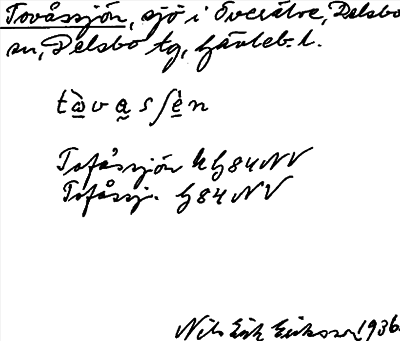 Tovåssjön, sjö i Överälve, Delsbo
sn, Delsbo tg, Gävleb. l.
tὼ̠va̰sʃè̠n
Tofåsjön k G84NV
Tofåssj. G84NV
Nils Erik Eriksson 1936